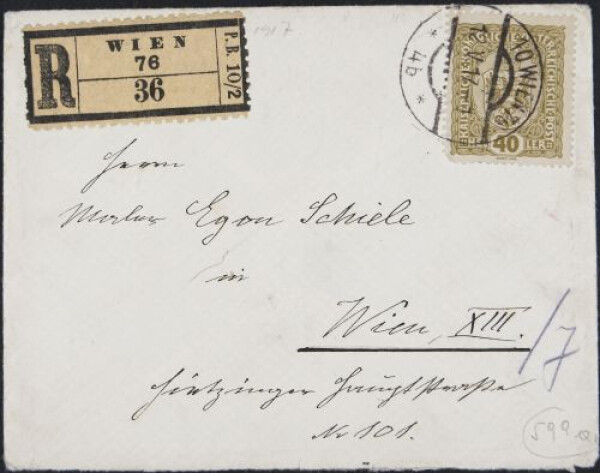 R
WIEN
76
36
P.B. 10/2
1917
* 4b *
KAISERLICHE KÖNIGLICHE ÖSTERREICHISCHE POST
40
Herrn
Maler Egon Schiele
in
Wien, XIII.
/7
Hietzinger Hauptstraße
No 101.